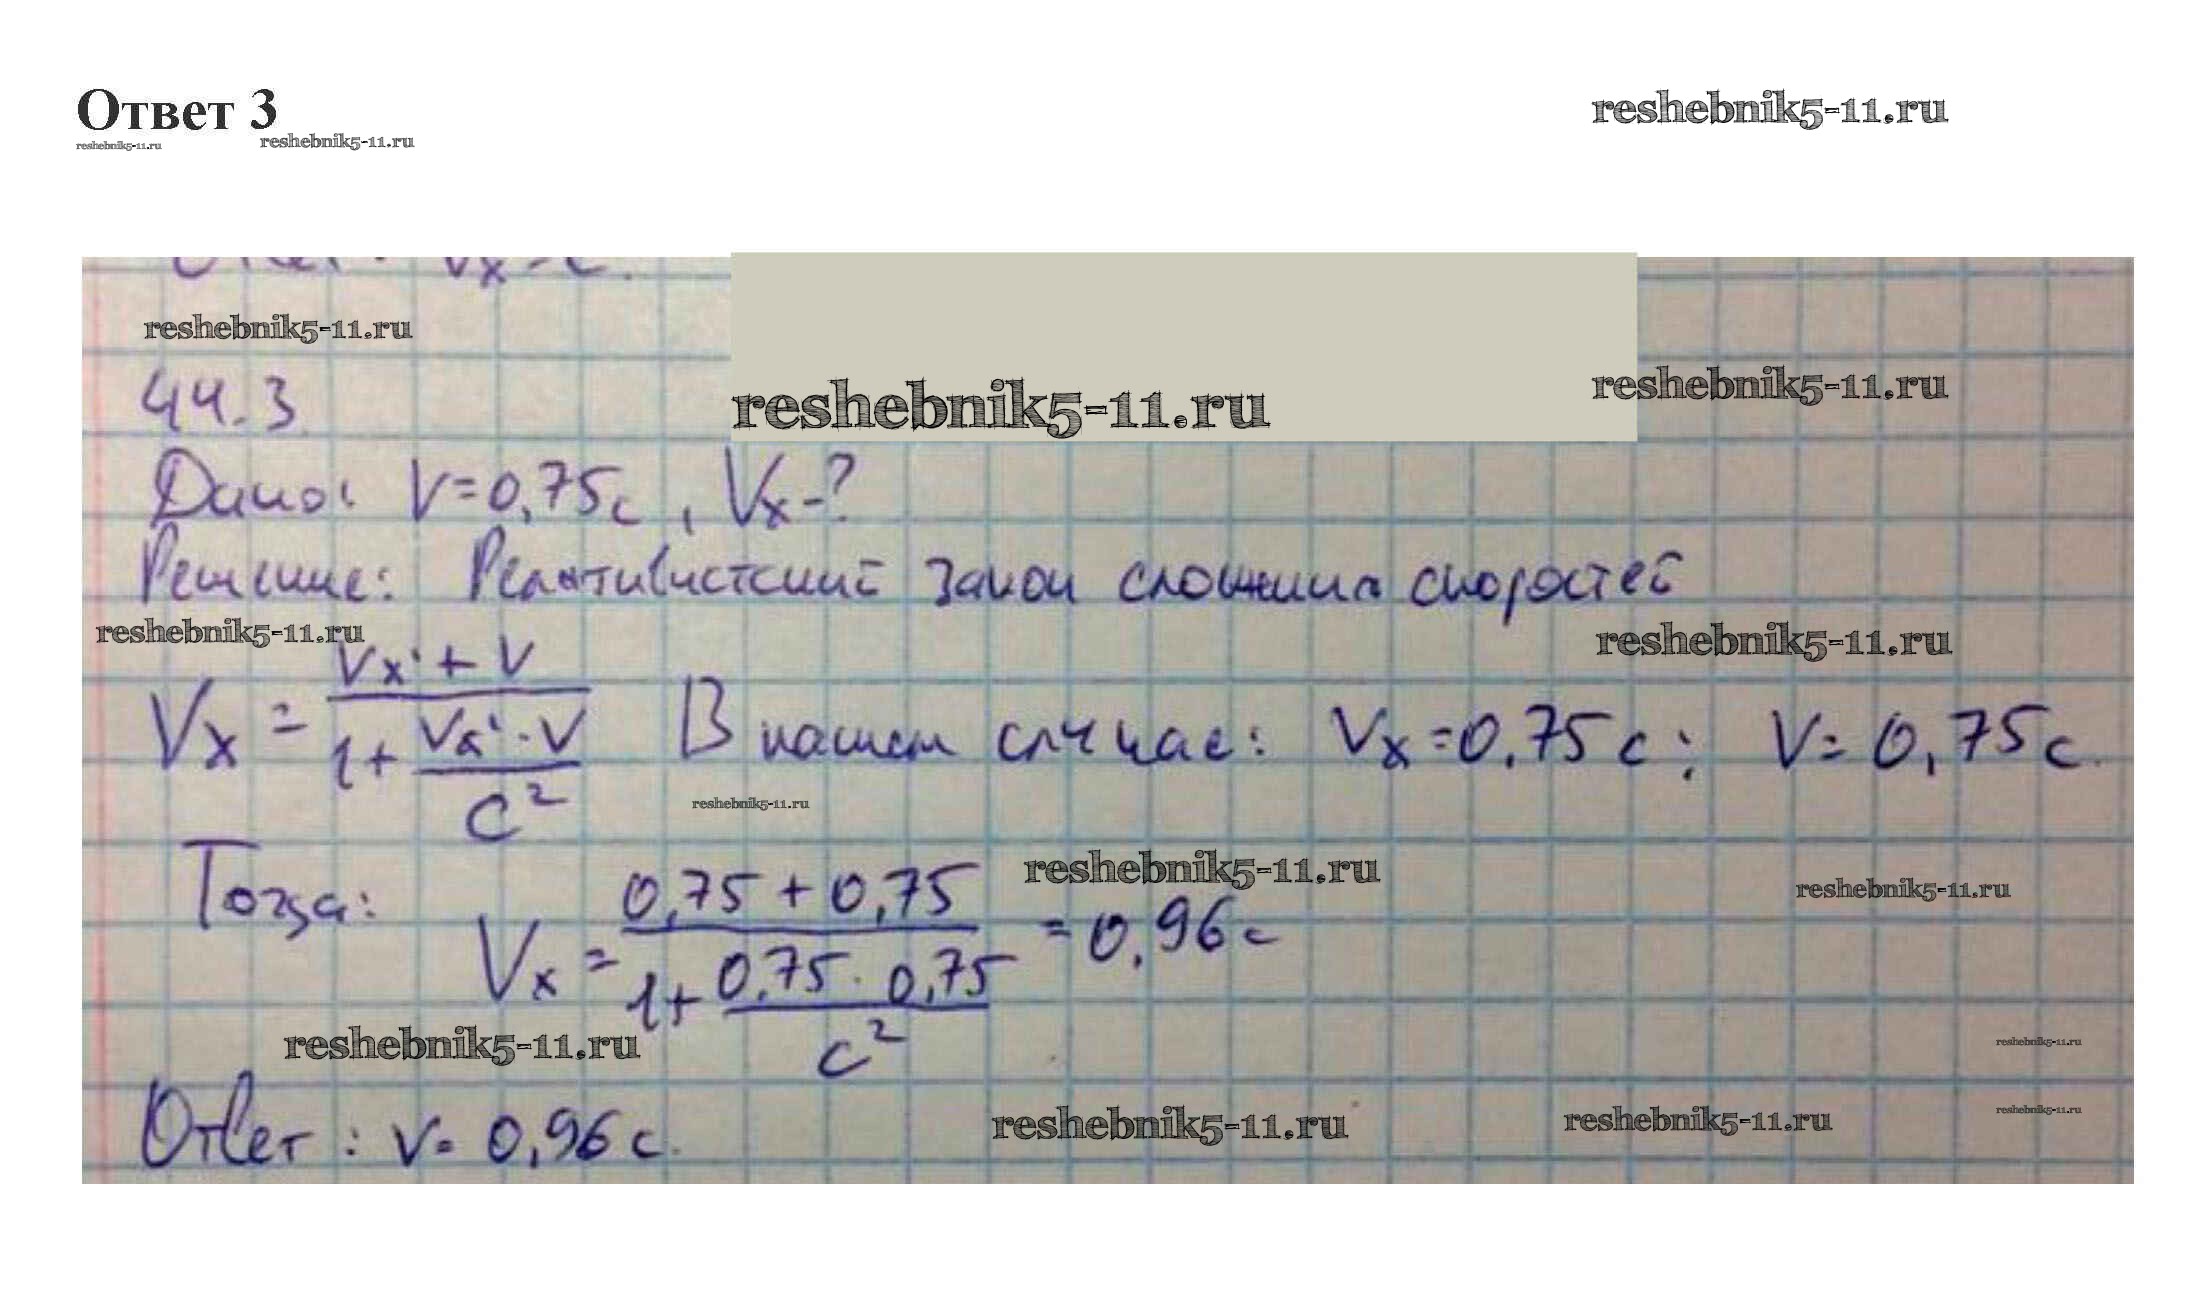 Ответ 3
reshebnik5-11.ru
reshebnik5-11.ru
reshebnik5-11.ru
Vx = c.
reshebnik5-11.ru
44.3
reshebnik5-11.ru
reshebnik5-11.ru
Дано: V=0,75c, Vx-?
Решение: Релятивистский закон сложения скоростей
reshebnik5-11.ru
reshebnik5-11.ru
Vx = (Vx' + V) / (1 + (Vx' · V) / c²) В нашем случае: Vx=0,75c; V=0,75c.
reshebnik5-11.ru
Тогда:
reshebnik5-11.ru
reshebnik5-11.ru
Vx = (0,75 + 0,75) / (1 + (0,75 · 0,75) / c²) = 0,96c
reshebnik5-11.ru
reshebnik5-11.ru
Ответ: V= 0,96c.
reshebnik5-11.ru
reshebnik5-11.ru
reshebnik5-11.ru